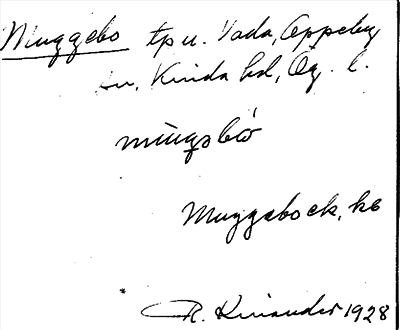 Muggebo tp u. Vada, Oppeby
sn, Kinda hd, Ög. l.
Muggebo ek. kb
R. Kinander 1928